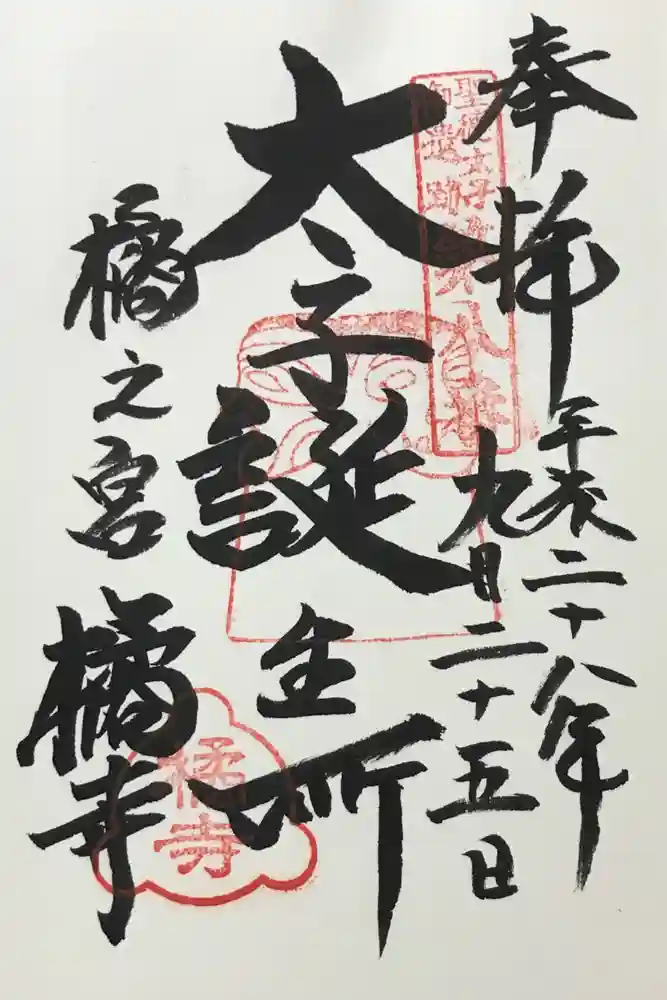 奉拝
平成二十八年
九月二十五日
聖徳太子御遺跡第八番
太子誕生所
橘之宮
橘寺
橘寺